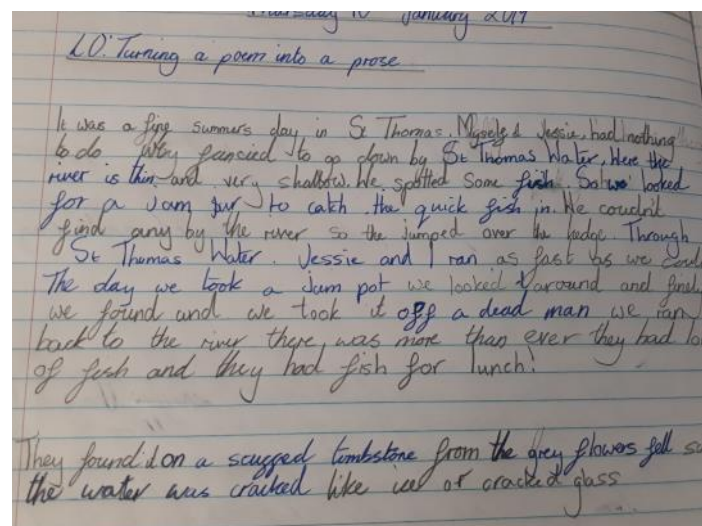 Thursday 10 January 2019
LO: Turning a poem into a prose
It was a fine summers day in St Thomas. Myself & Jessie, had nothing
to do Why fancied to go down by St Thomas Water. Here the
river is thin and very shallow. We spotted some fish. So we looked
for a Jam Jar to catch the quick fish in. We coudn't
find any by the river so the jumped over the hedge. Through
St Thomas Water. Jessie and I ran as fast as we could
The day we took a Jam pot we looked around and
we found and we took it off a dead man we ran
back to the river there, was more than ever they had
of fish and they had fish for lunch!
They found it on a scugged tombstone from the grey flowers fell
the water was cracked like ice or cracked glass